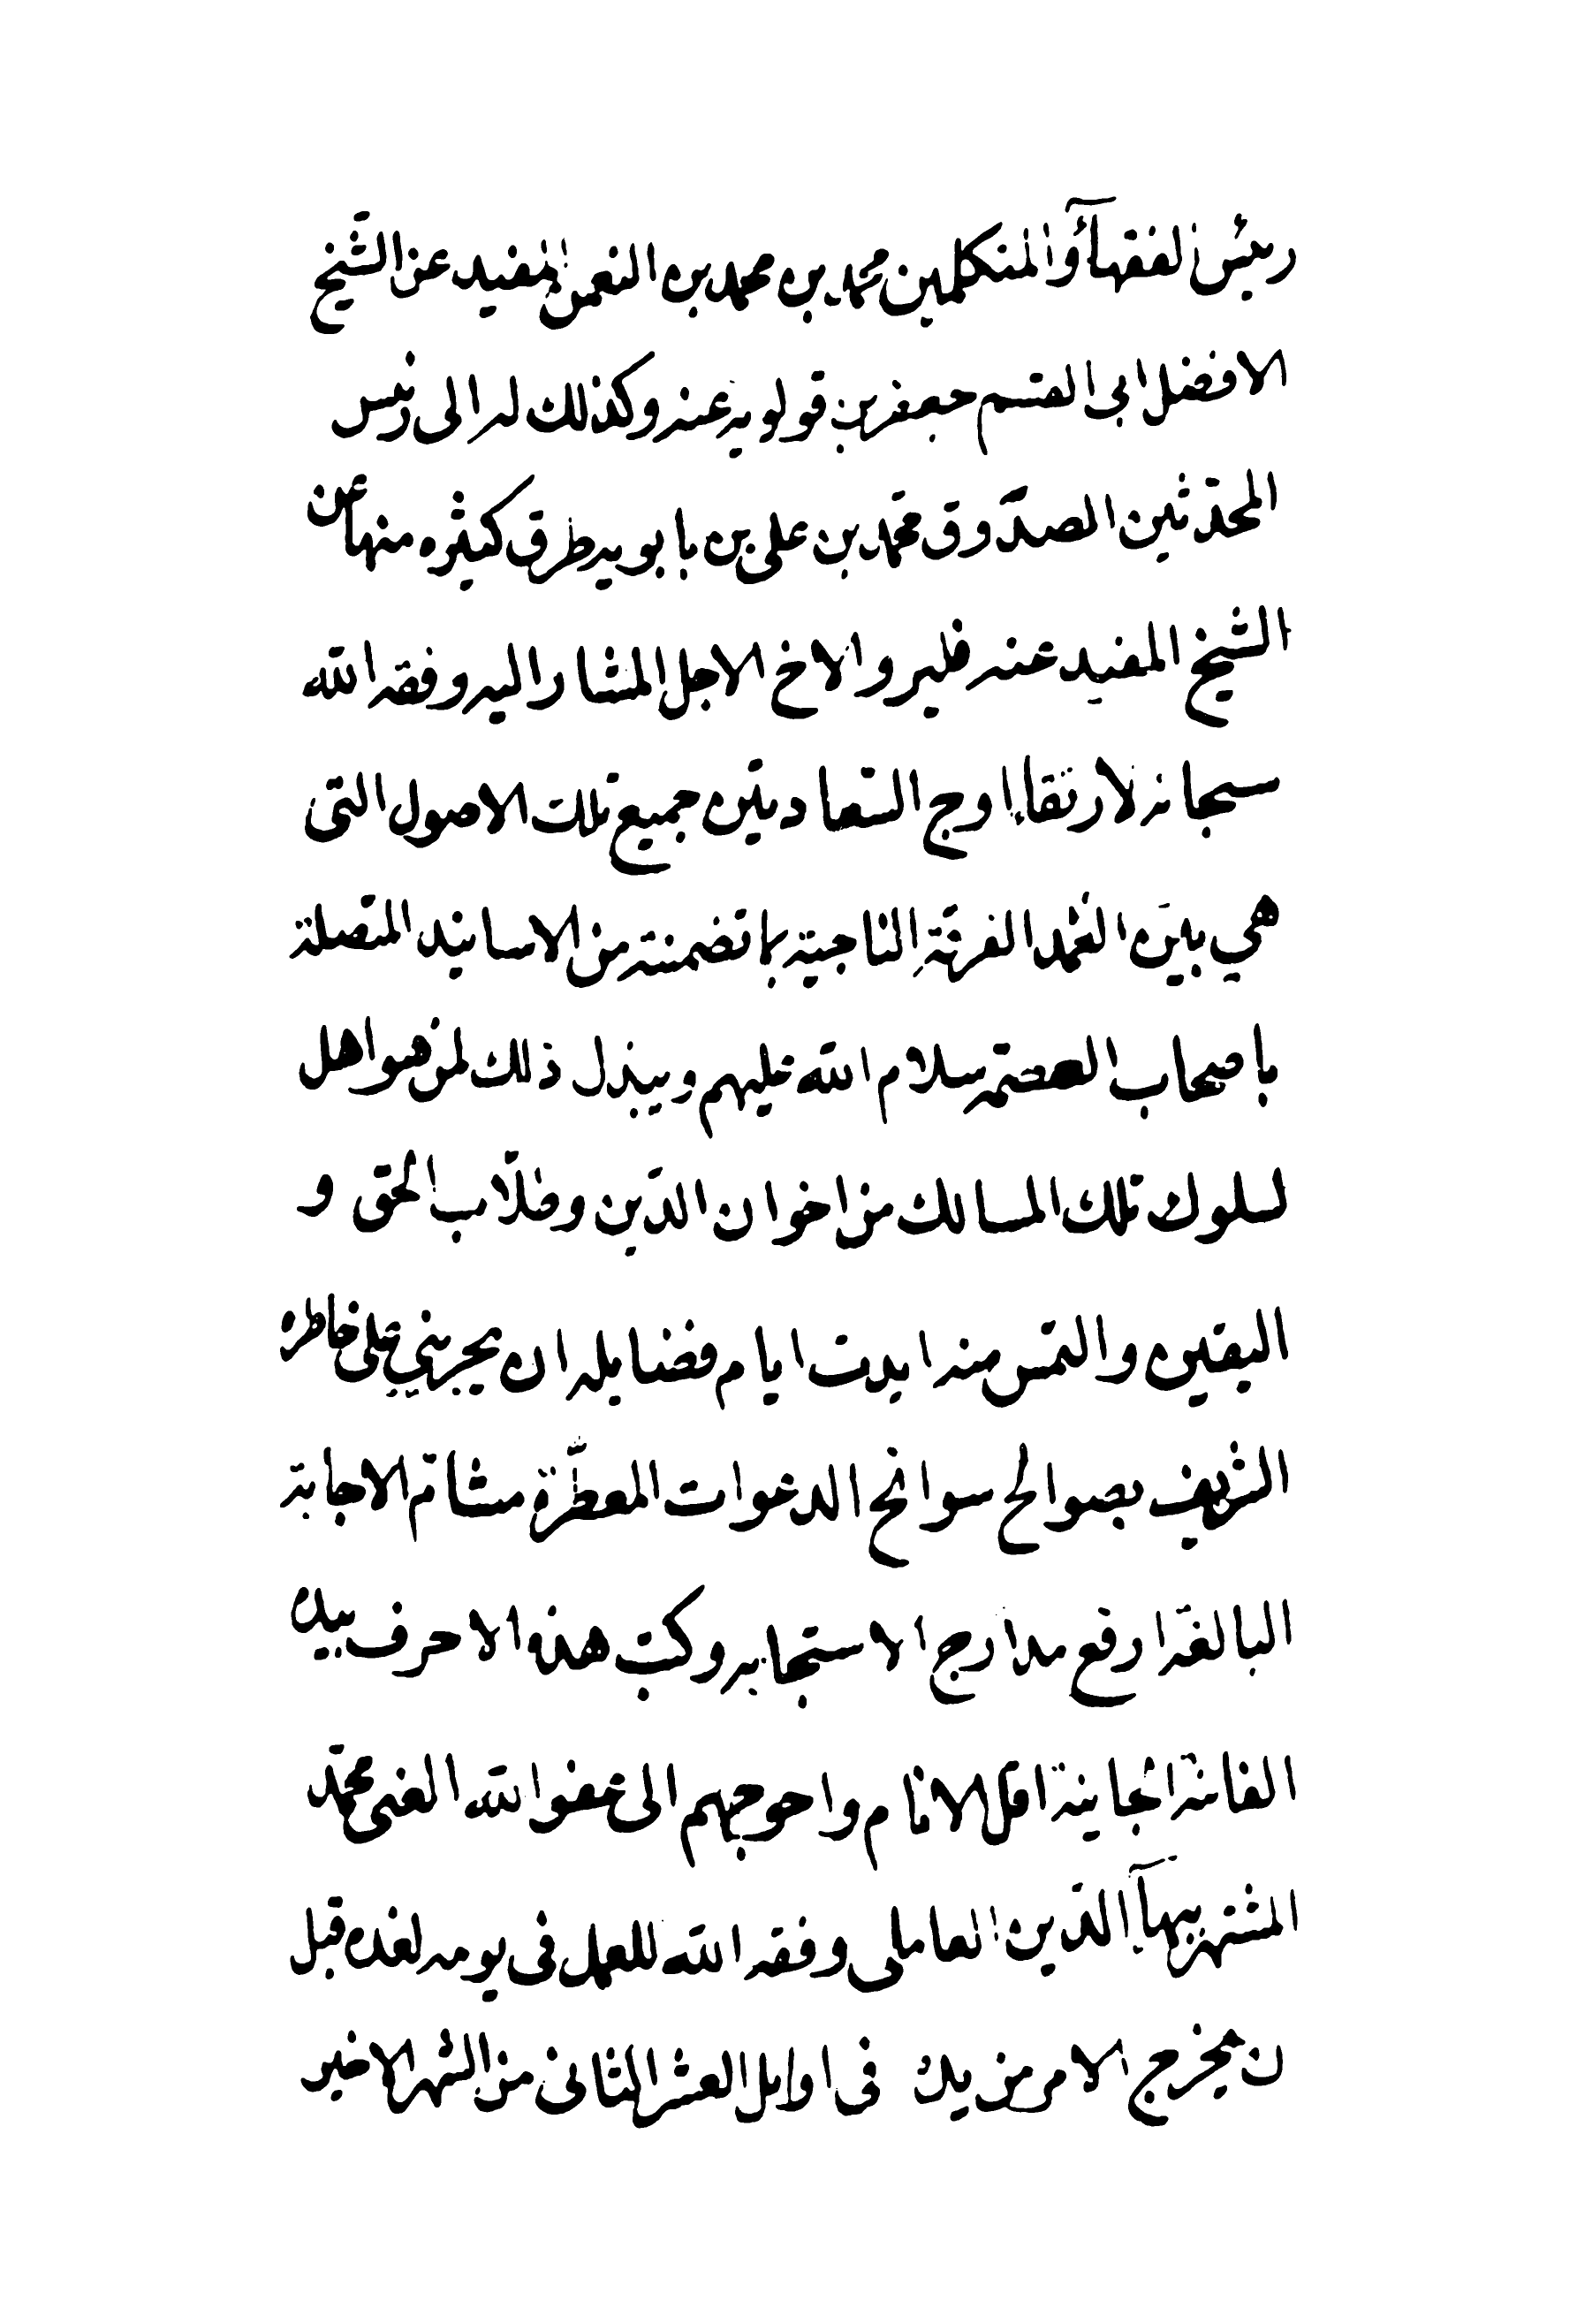 رئيس الفقهآء والمتكلمين محمد بن محمد بن النعمن المفيد عن الشيخ
الافضل ابى القسم جعفر بن قولويه عنه وكذلك له الى رئيس
المحدّثين الصدّوق محمّد بن على بن بابويه طرق كثيره منها عن
الشيخ المفيد عنه فليرو الاخ الاجل المشار اليه وفقه الله
سبحانه لارتقاء اوج السّعادتيّن جميع تلك الاصول التى
هي بيَن العُمد الفرقَةِ النّاجيّة بما تضمنته من الاسانيد المتّصلة
باصحاب العصمة سلام الله عليهم ويبذل ذلك لمن هو اهل
لسلوك تلك المسالك من اخوان الدّين وطلّاب الحق و
اليقين والتمس منه ايدت ايام فضايله ان يجريني على خاطره
الشريف بصوالح سوانح الدعوات المعطّرة مشامّ الاجابة
البالغة ارفع مدارج الاستجابه وكتب هذه الاحرف بيده
الفانية الجانية اقل الانام واحوجهم الى عفو الله الغنى محمّد
المشتهر ببهآء الدّين العاملى وفقه الله للعمل فى يومه لغده قبل
ن يخرج الامر من يده فى اوايل العشر الثانى من الشهر الاخير